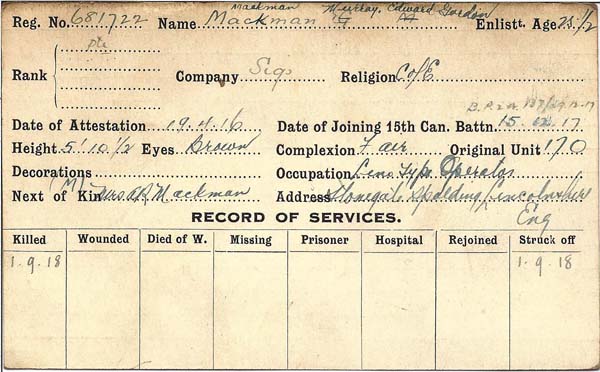 Mackman Murray, Edward Gordon
Reg. No. 681722 Name Mackman Enlistt. Age 25 1/2
pte
Rank Company Sigs Religion C of E
B.R.2A.
Date of Attestation 19.4.16 Date of Joining 15th Can. Battn. 15. 12. 17
Height 5' 10 1/2 Eyes Brown Complexion Fair Original Unit 170
Decorations Occupation Leno Type Operator
Next of Kin (M) Mrs Mackman Address Stonegate Spalding, Lincolnshire
Eng
RECORD OF SERVICES.
Killed Wounded Died of W. Missing Prisoner Hospital Rejoined Struck off
1.9.18 1.9.18